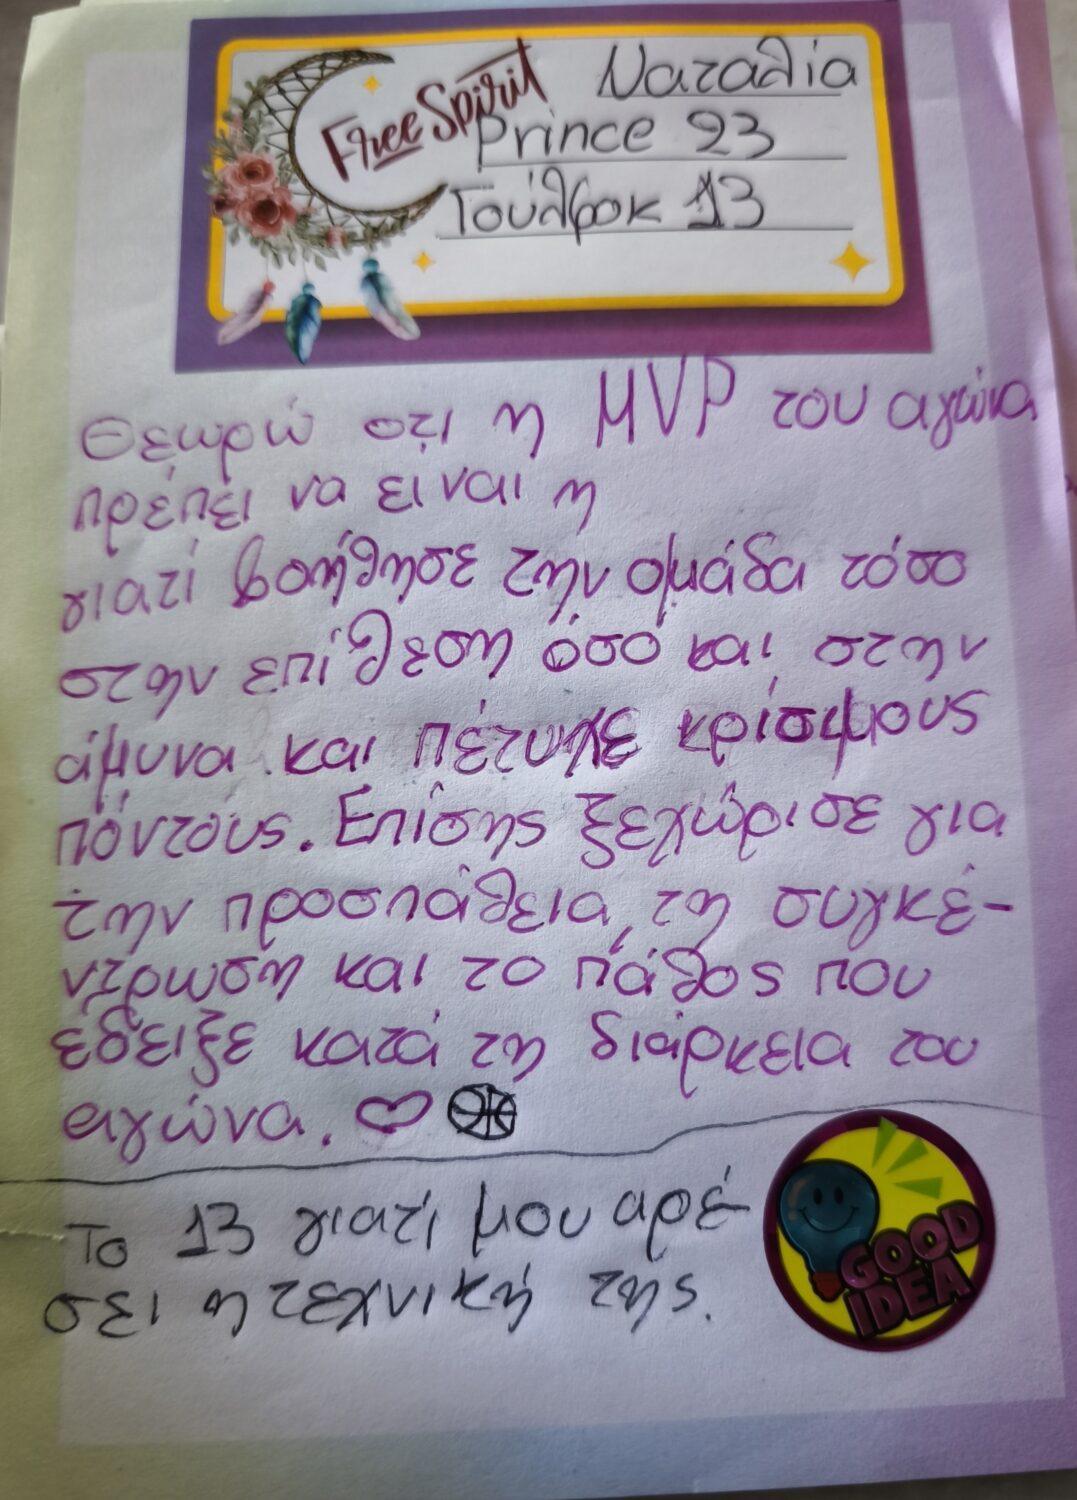 Free Spirit
Ναταλία
Prince 23
Γουλφοκ 13
Θεωρώ οτι η MVP του αγώνα
πρέπει να ειναι η
γιατί βοήθησε την ομάδα τόσο
στην επίθεση όσο και στην
άμυνα και πέτυχε κρίσιμους
πόντους. Επίσης ξεχώρισε για
την προσπάθεια, τη συγκέ-
ντρωση και το πάθος που
έδειξε κατά τη διάρκεια του
αγώνα.
Το 13 γιατί μου αρέ-
σει η τεχνική της.
GOOD
IDEA